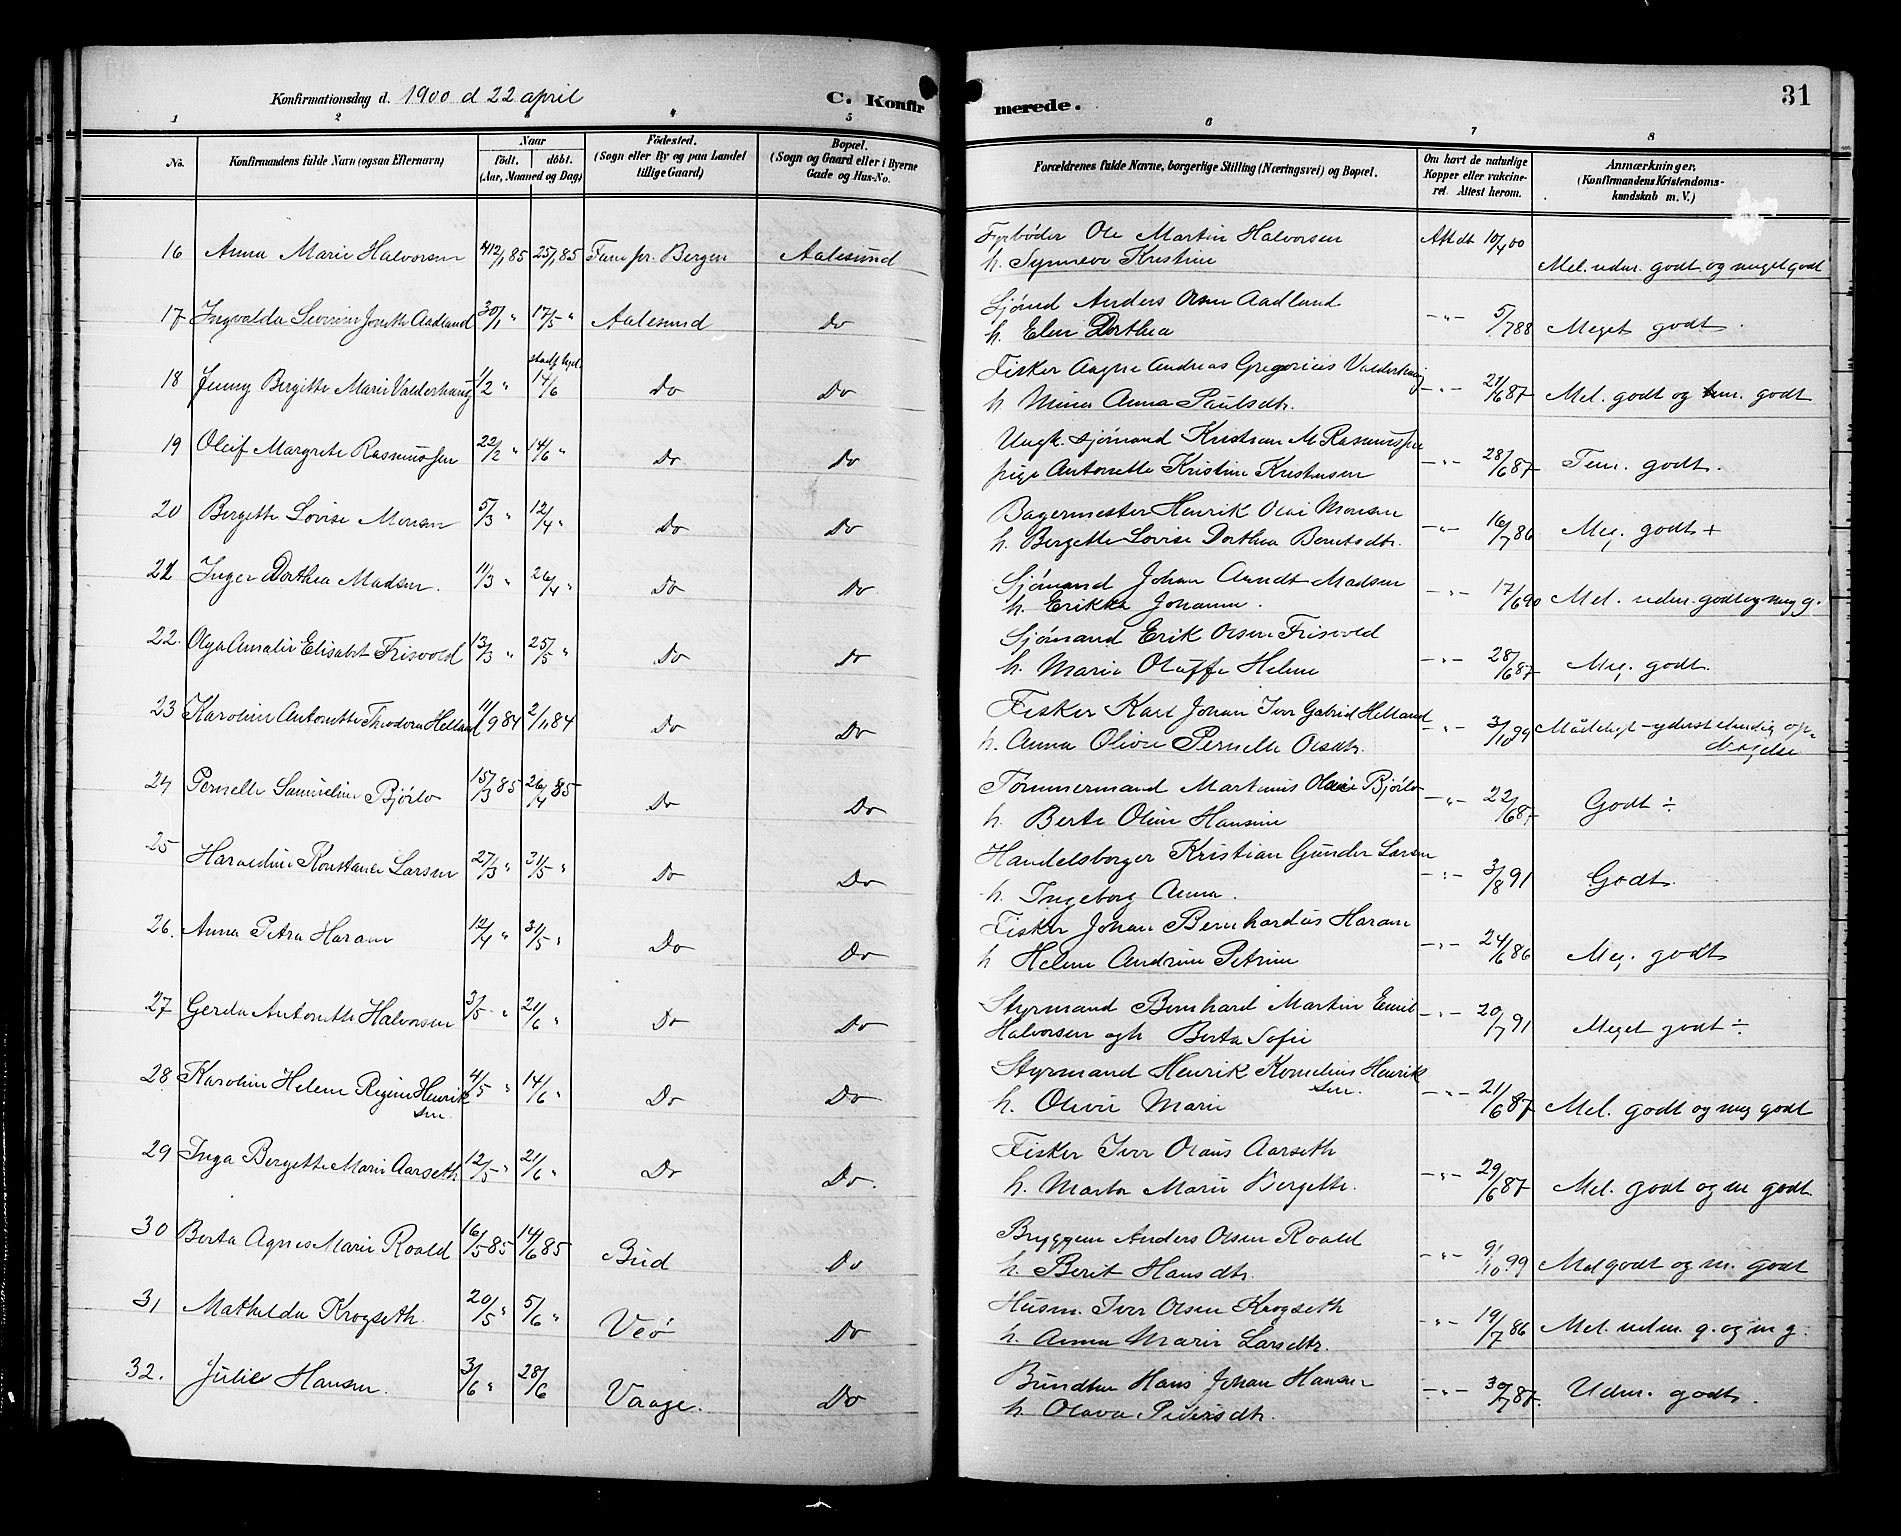 Konfirmationsdag d. 1900 d 22 april
C. Konfir
merede.
31
1 2 3 4 5 6 7 8
No.
Konfirmandens fulde Navn (ogsaa Efternavn)
Naar
födt. döbt.
(Aar, Maaned og Dag)
Födested.
(Sogn eller By og paa Landet
tillige Gaard)
Bopæl.
(Sogn og Gaard eller i Byerne
Gade og Hus-No.
Forældrenes fulde Navne, borgerlige Stilling (Næringsvei) og Bopæl.
Om havt de naturlige
Kopper eller vakcine-
ret. Attest herom.
Anmærkninger,
(Konfirmandens Kristendoms-
kundskab m. V.)
16 Anna Marie Halvorsen 12/1 85 25/1 85 Bergen Aalesund
Fyrbøder Ole Martin Halvorsen
h. Synneve Kristine
Att dt 10/4 00 Mel. udm. godt og meget godt
17 Ingvalda Severine Jonette Aadland 30/1 " 17/5 " Aalesund Do
Sjømd Anders Olsen Aadland
h. Elen Dorthea
-"- 5/7 88 Meget godt.
18 Jenny Bergitte Marie Valderhaug 1/2 " 14/6 Do Do
Fisker Aagne Andreas Gregorius Valderhaug
h Mina Anna Paulsdtr.
-"- 21/6 87 Mel. godt og tem. godt
19 Oleif Margrete Rasmussen 22/2 " 14/6 " Do Do
Ungk. sjømand Kristian M Rasmussen
pige Antonette Kristine Kristensen
-"- 28/6 87 Tem. godt.
20 Bergette Lovise Monsen 5/3 " 12/4 " Do Do
Bagermester Henrik Olai Monsen
h. Bergette Lovise Dorthea Berntsdtr.
-"- 16/7 86 Meg. godt +
21 Inger Dorthea Madsen. 11/3 " 26/4 " Do Do
Sjømand Johan Arndt Madsen
h. Erikka Johanne.
-"- 17/6 90 Mel. udm. godt og meg g.
22. Olga Amalie Elisabet Frisvold 13/3 " 25/5 " Do Do
Sjømand Erik Olsen Frisvold
h. Marie Oluffe Helene
-"- 28/6 87 Meg. godt.
23 Karoline Antonette Theodora Helland 11/9 84 2/11 84 Do Do
Fisker Karl Johan Iver Gabriel Helland
h. Anna Olive Pernelle Olsdtr.
-"- 3/10 99 Mådeligt - yderst elendig op-
dragelse
24 Pernelle Samueline Bjørlo 15/3 85 26/4 85 Do Do
Tømmermand Martinus Olai Bjørlo
h. Berte Oline Hansine
-"- 22/6 87 Godt ÷
25 Haraldine Konstance Larsen 27/3 " 31/5 " Do Do
Handelsborger Kristian Gunder Larsen
h. Ingeborg Anna.
-"- 3/8 91 Godt.
26. Anna Petra Haram 12/4 " 31/5 " Do Do
Fisker Johan Bernhardus Haram
h Helene Andrine Petrine
-"- 24/6 86 Meg. godt
27 Gerda Antonette Halvorsen 3/5 " 21/6 " Do Do
Styrmand Bernhard Martin Emil
Halvorsen og h Berta Sofie
-"- 20/7 91 Meget godt ÷
28 Karoline Helene Regine Henrik
sen. 4/5 " 14/6 " Do Do
Styrmand Henrik Kornelius Henrik
sen.
h. Olivie Marie
-"- 21/6 87 Mel. godt og meg godt
29 Inga Bergette Marie Aarseth 12/5 " 21/6 " Do Do.
Fisker Iver Olaus Aarseth
h. Marta Marie Bergette.
-"- 29/6 87 Mel. godt og m godt.
30 Berta Agnes Marie Roald 16/5 85 14/6 85 Bud Do
Bryggem Anders Olsen Roald
h. Berit Hansdtr.
-"- 9/10 99 Mel godt og m. godt
31 Mathilda Krogseth. 20/5 " 5/6 " Veø Do
Husm. Iver Olsen Krogseth
h. Anna Marie Larsdtr.
-"- 19/7 86 Mel. udm. g. og m g.
32. Julie Hansen. 3/6 " 28/6 Vaage. Do
Bundtm Hans Johan Hansen
h Olava Pedersdtr.
-"- 30/7 87. Udm. godt.